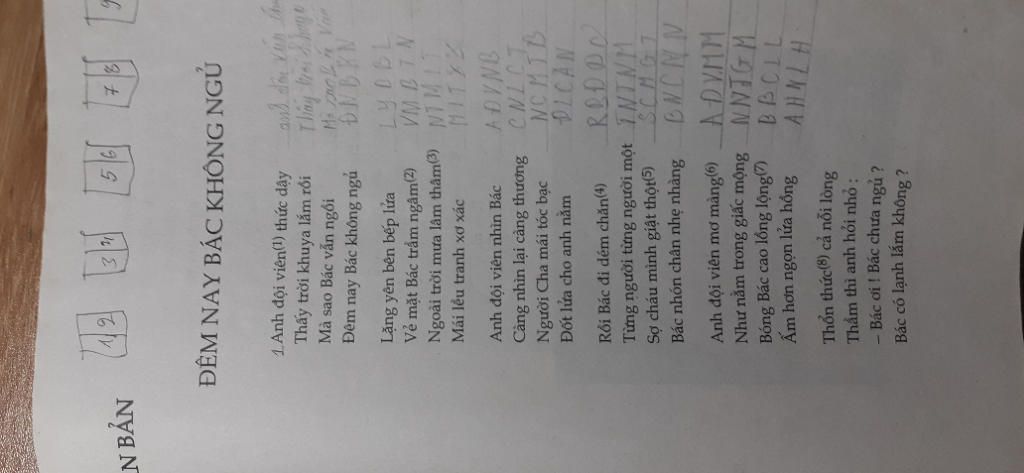 N BẢN
1 2 3 4 5 6 7 8 9
ĐÊM NAY BÁC KHÔNG NGỦ
1. Anh đội viên(1) thức dậy
Thấy trời khuya lắm rồi
Mà sao Bác vẫn ngồi
Đêm nay Bác không ngủ
Lặng yên bên bếp lửa
Vẻ mặt Bác trầm ngâm(2)
Ngoài trời mưa lâm thâm(3)
Mái lều tranh xơ xác
Anh đội viên nhìn Bác
Càng nhìn lại càng thương
Người Cha mái tóc bạc
Đốt lửa cho anh nằm
Rồi Bác đi dém chăn(4)
Từng người từng người một
Sợ cháu mình giật thột(5)
Bác nhón chân nhẹ nhàng
Anh đội viên mơ màng(6)
Như nằm trong giấc mộng
Bóng Bác cao lồng lộng(7)
Ấm hơn ngọn lửa hồng
Thổn thức(8) cả nỗi lòng
Thầm thì anh hỏi nhỏ :
– Bác ơi ! Bác chưa ngủ ?
Bác có lạnh lắm không ?
ĐNBKN
LYBBL
VMBTN
NTMLT
MLTXX
AĐVNB
CNLCT
NCMTB
ĐLCAN
RBĐDC
TNTNM
SCMGT
BNCNN
AĐVMM
NNTGM
BBCLL
AHNLH